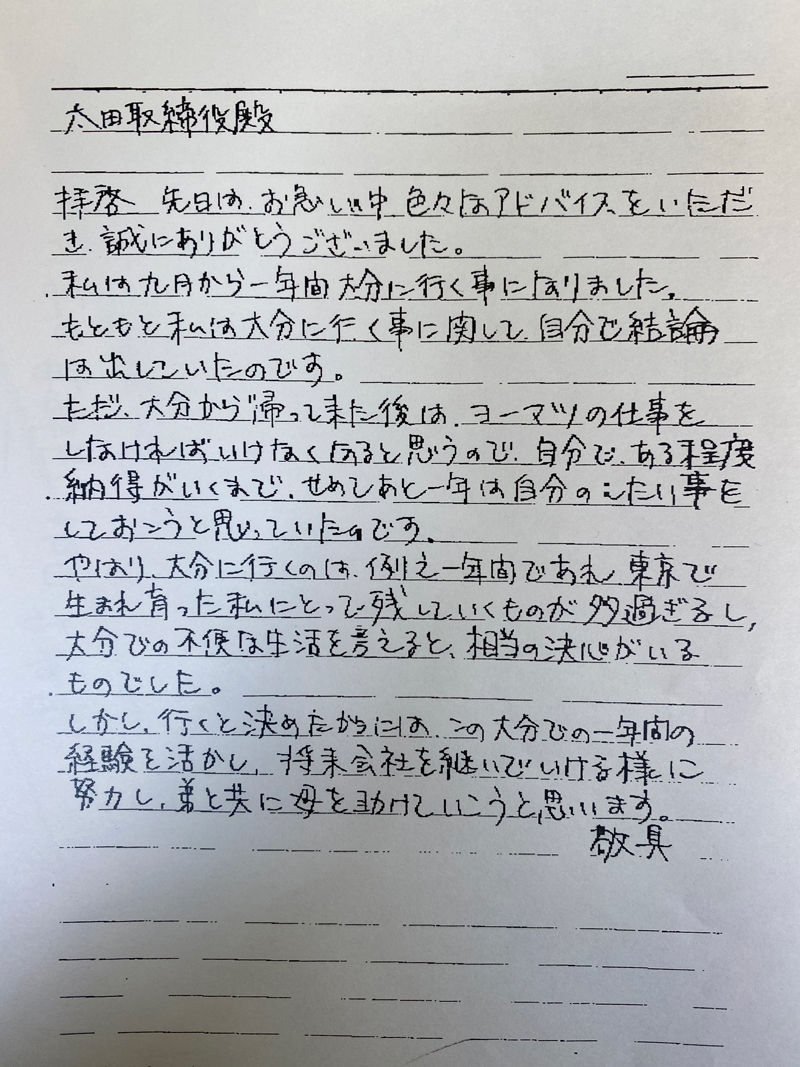 太田取締役殿
拝啓 先日は、お急しい中 色々なアドバイスをいただ
き、誠にありがとうございました。
私は九月から一年間大分に行く事になりました。
もともと私は大分に行く事に関して、自分で結論
は出していたのです。
ただ、大分から帰って来た後は、ヨーマツの仕事を
しなければいけなくなると思うので、自分で、ある程度
納得がいくまで、せめてあと一年は自分のしたい事を
しておこうと思っていたのです。
やはり、大分に行くのは、例え一年間であれ、東京で
生まれ育った私にとって残していくものが多過ぎるし、
大分での不便な生活を考えると、相当の決心がいる
ものでした。
しかし、行くと決めたからには、この大分での一年間の
経験を活かし、将来会社を継いでいける様に
努力し、弟と共に母を助けていこうと思います。
敬具